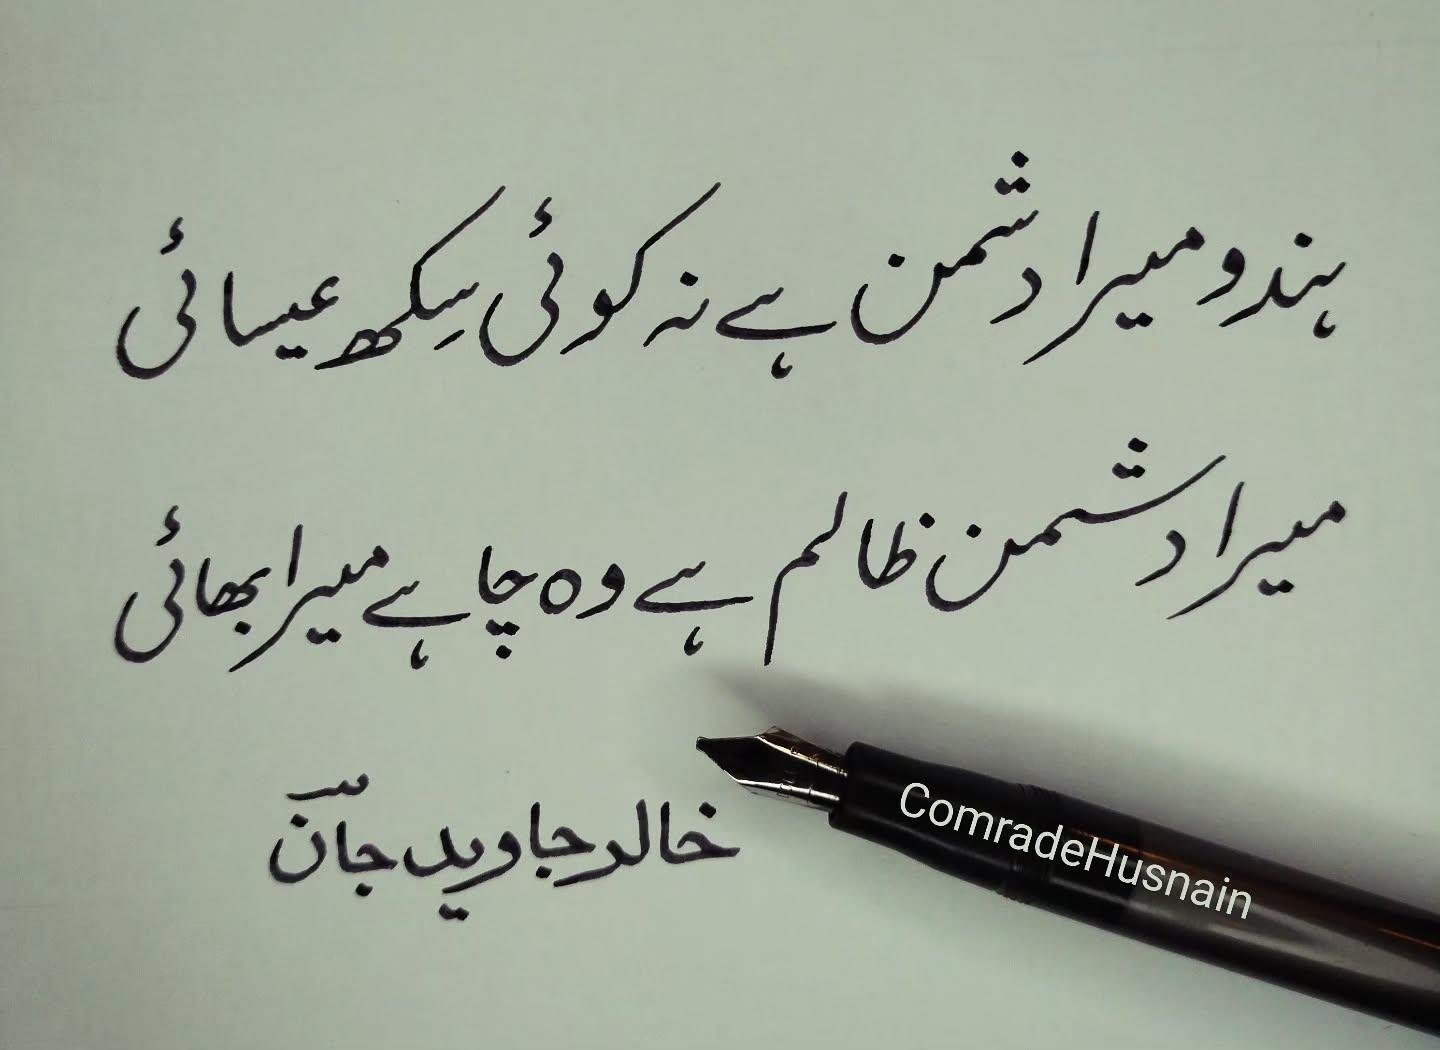 ہندو میرا دشمن ہے نہ کوئی سِکھ عیسائی
میرا دشمن ظالم ہے وہ چاہے میرا بھائی
خالد جاوید جانؔ
ComradeHusnain